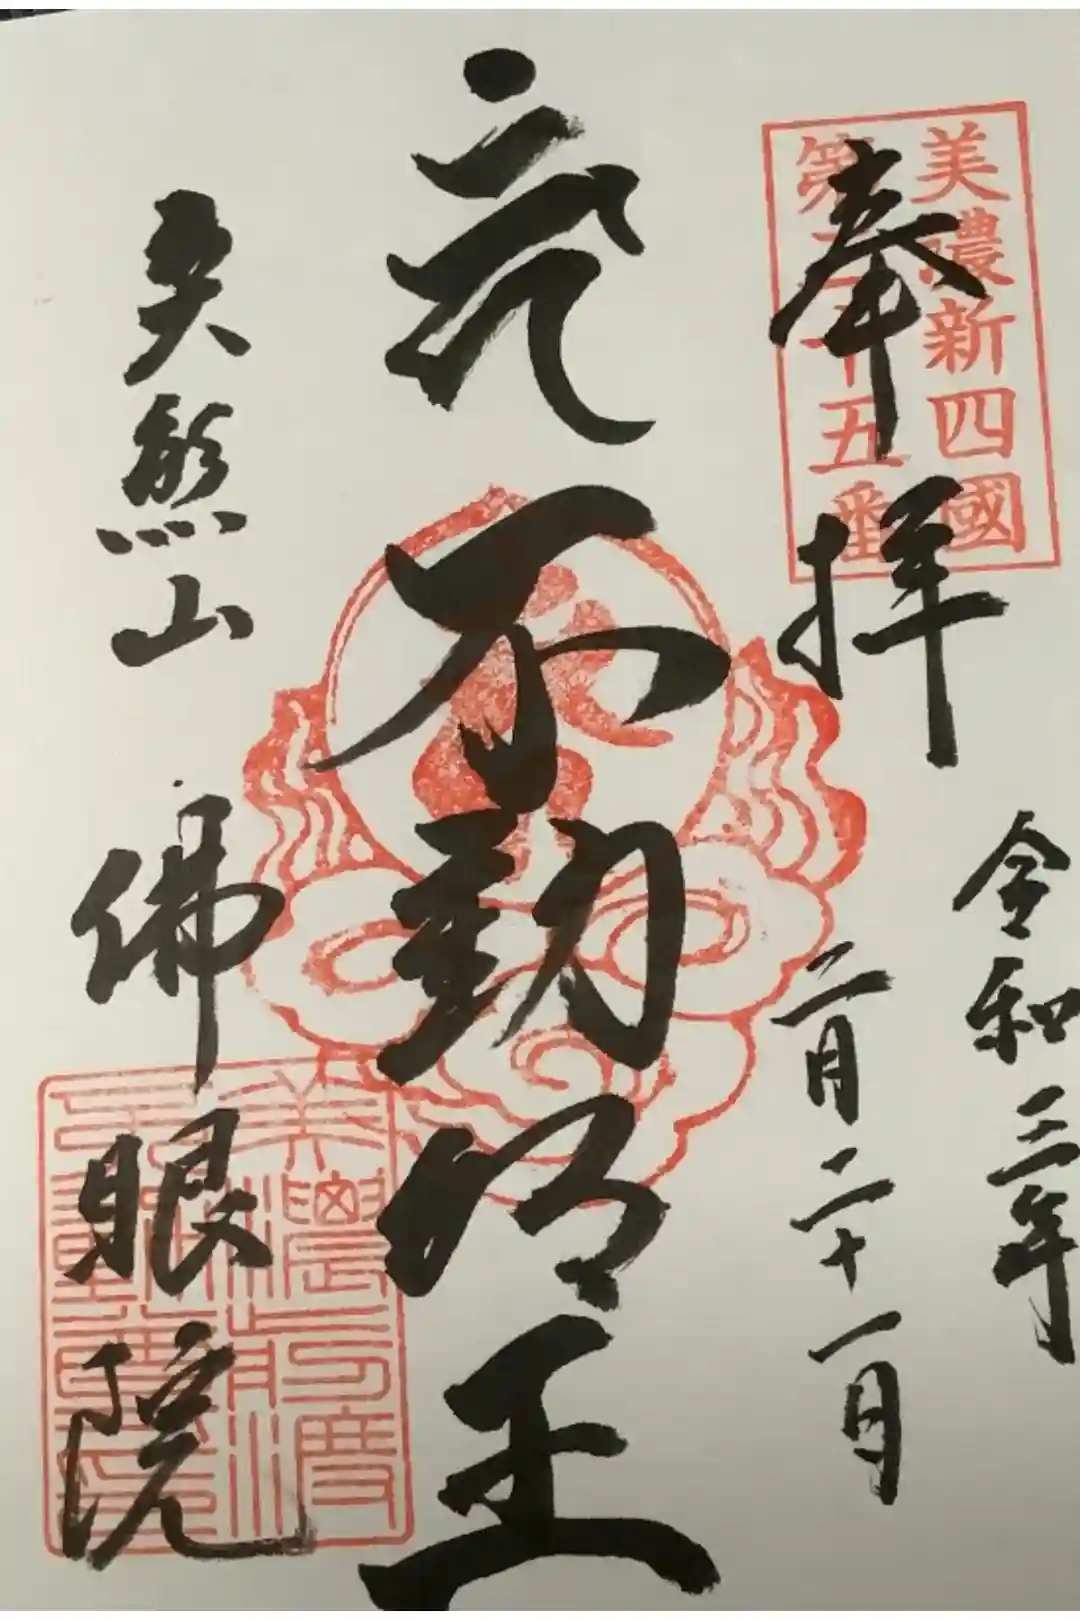 美濃新四國
第二十五番
奉拝
令和三年
二月二十一日
不動明王
佛眼院